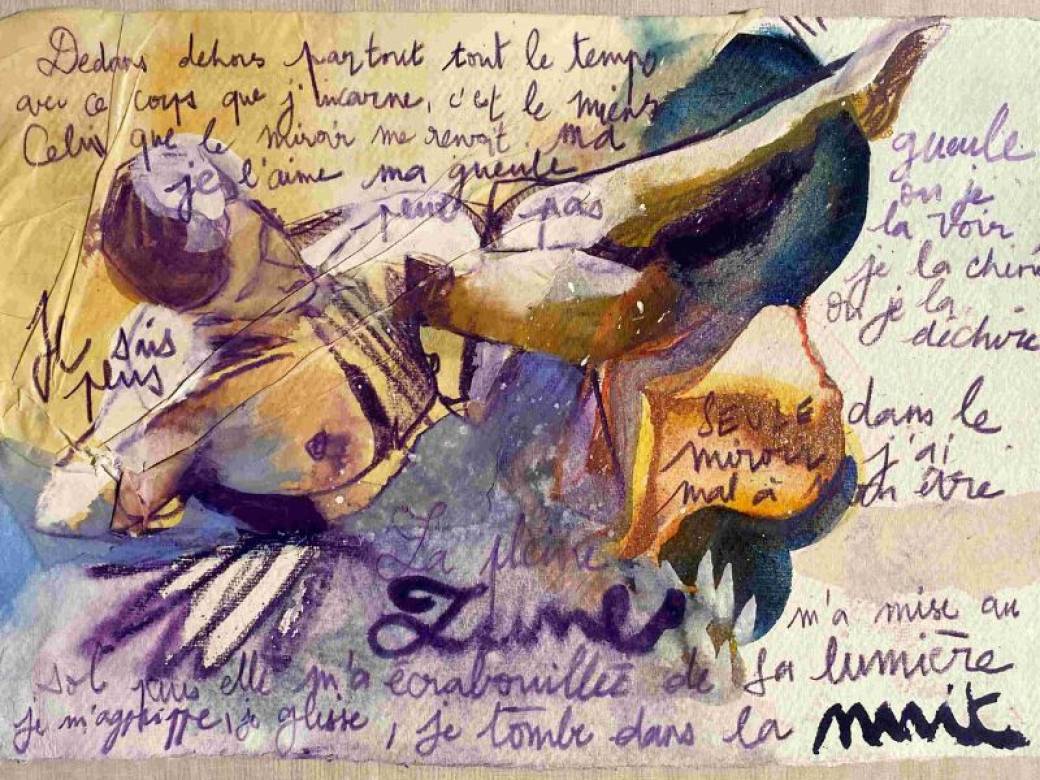 Dedans dehors partout tout le temps
avec ce corps que j'incarne, c'est le miens
Celui que le miroir me renvoit. ma
je l'aime ma gueule
peux pas
Je suis
pens
gueule
ou je
la voir
je la chéri
Ou je la
déchire
SEULE dans le
miroir j'ai
mal à mon être
La pleine
Lune
m'a mise au
sol puis elle m'a écrabouillée de sa lumière
je m'aggrippe, je glisse, je tombe dans la nuit